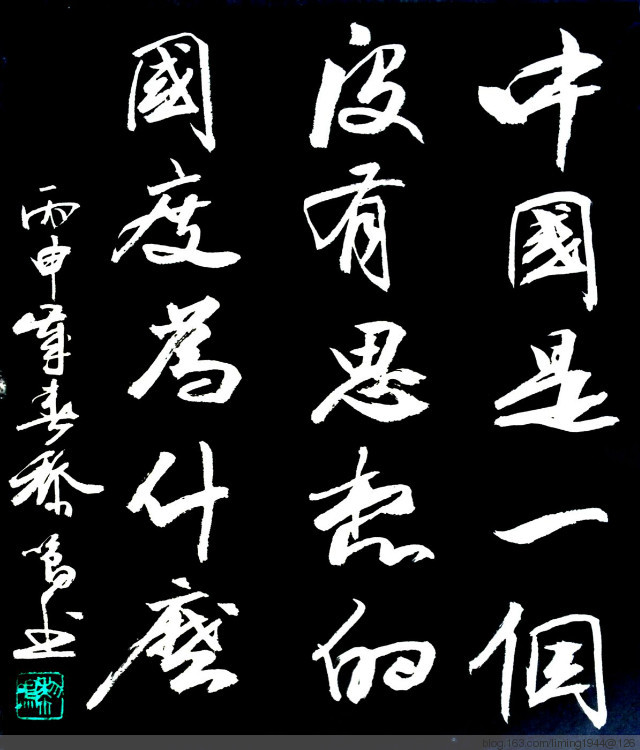 中國是一個
沒有思想的
國度為什麼
丙申歲春黎鳴书
blog.163.com/liming1944@126